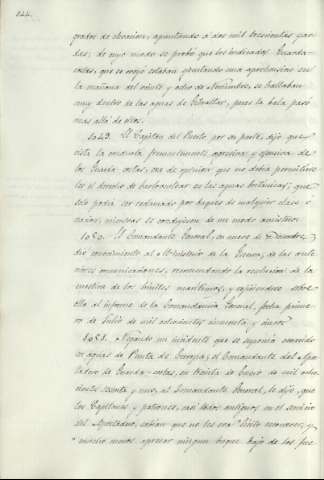 244.
grados de elevacion, apuntando á dos mil trescientas yar-
das; de cuyo modo se probó que los indicados Guarda-
costas, que se creyó estaban efectuando una aprehension en
la mañana del veinte y ocho de Noviembre, se hallaban
muy dentro de las aguas de Gibraltar, pues la bala pasó
mas allá de ellos.
1049. El Capitan del Puerto por su parte, dijo que
vista la conducta frecuentemente agresiva y ofensiva de
los Guarda-costas, era de opinion que no debia permitirse-
les el derecho de barloventear en las aguas británicas, que
solo podia ser reclamado por buques de cualquier clase ó
nacion, mientras se condujesen de un modo amistoso.
1050. El Comandante General, en nueve de Diciembre,
dió conocimiento al Ministerio de la Guerra, de las ante-
riores comunicaciones, recomendando la resolucion de la
cuestion de los límites marítimos, y refiriéndose sobre
ello al informe de la Comandancia General, fecha prime-
ro de Julio de mil ochocientos cincuenta y nueve.
1051. Negando un incidente que se suponia ocurrido
en aguas de Punta de Europa, el Comandante del Apos-
tadero de Guarda-costas, en treinta de Enero de mil ocho-
cientos sesenta y uno, al Comandante General, le dijo, que
los Capitanes y patrones, casi todos antiguos en el servicio
del Apostadero, sabian que no les era "lícito reconocer, y
" mucho menos apresar ningun buque bajo de los fue-